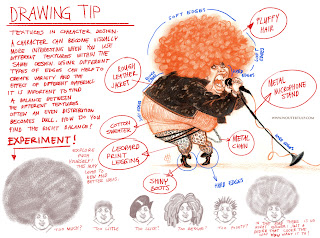 DRAWING TIP
TEXTURES IN CHARACTER DESIGN:
A CHARACTER CAN BECOME VISUALLY
MORE INTERESTING WHEN YOU USE
DIFFERENT TEXTURES WITHIN THE
SAME DESIGN. USING DIFFERENT
TYPES OF EDGES CAN HELP TO
CREATE VARIETY AND THE
EFFECT OF DIFFERENT MATERIALS.
IT IS IMPORTANT TO FIND
A BALANCE BETWEEN
THE DIFFERENT TEXTURES
OFTEN AN EVEN DISTRIBUTION
BECOMES DULL. HOW DO YOU
FIND THE RIGHT BALANCE?
EXPERIMENT!
SOFT EDGES
FLUFFY
HAIR
ROUGH
LEATHER
JACKET
METAL
MICROPHONE
STAND
COTTON
SWEATER
LEOPARD
PRINT
LEGGING
METAL
CHAIN
SHINY
BOOTS
HARD EDGES
EXPLORE
PUSH
YOURSELF!
THIS MAY
LEAD TO
NEW AND
BETTER IDEAS.
TOO MUCH?
TOO LITTLE?
TOO SLICK?
TOO DENSE?
TOO POINTY?